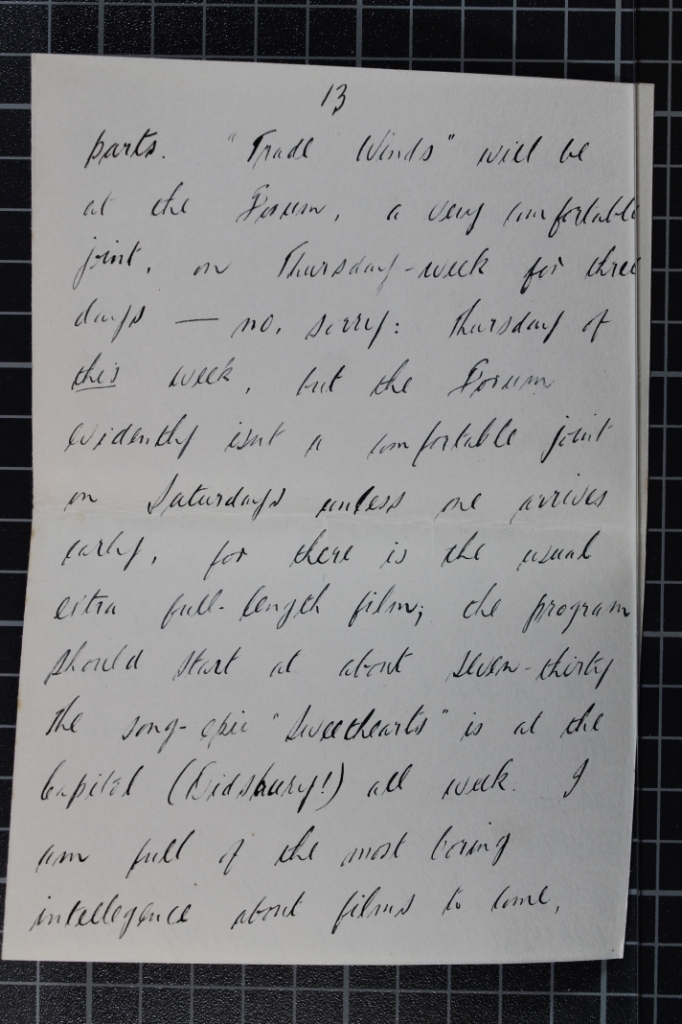 13
parts. "Trade Winds" will be
at the Forum, a very comfortable
joint, on Thursday-week for three
days — no, sorry: Thursday of
this week, but the Forum
evidently isnt a comfortable joint
on Saturdays unless one arrives
early, for there is the usual
extra full-length film; the program
should start at about seven-thirty
The song-epic "Sweethearts" is at the
Capitol (Didsbury!) all week. I
am full of the most boring
intellegence about films to come,